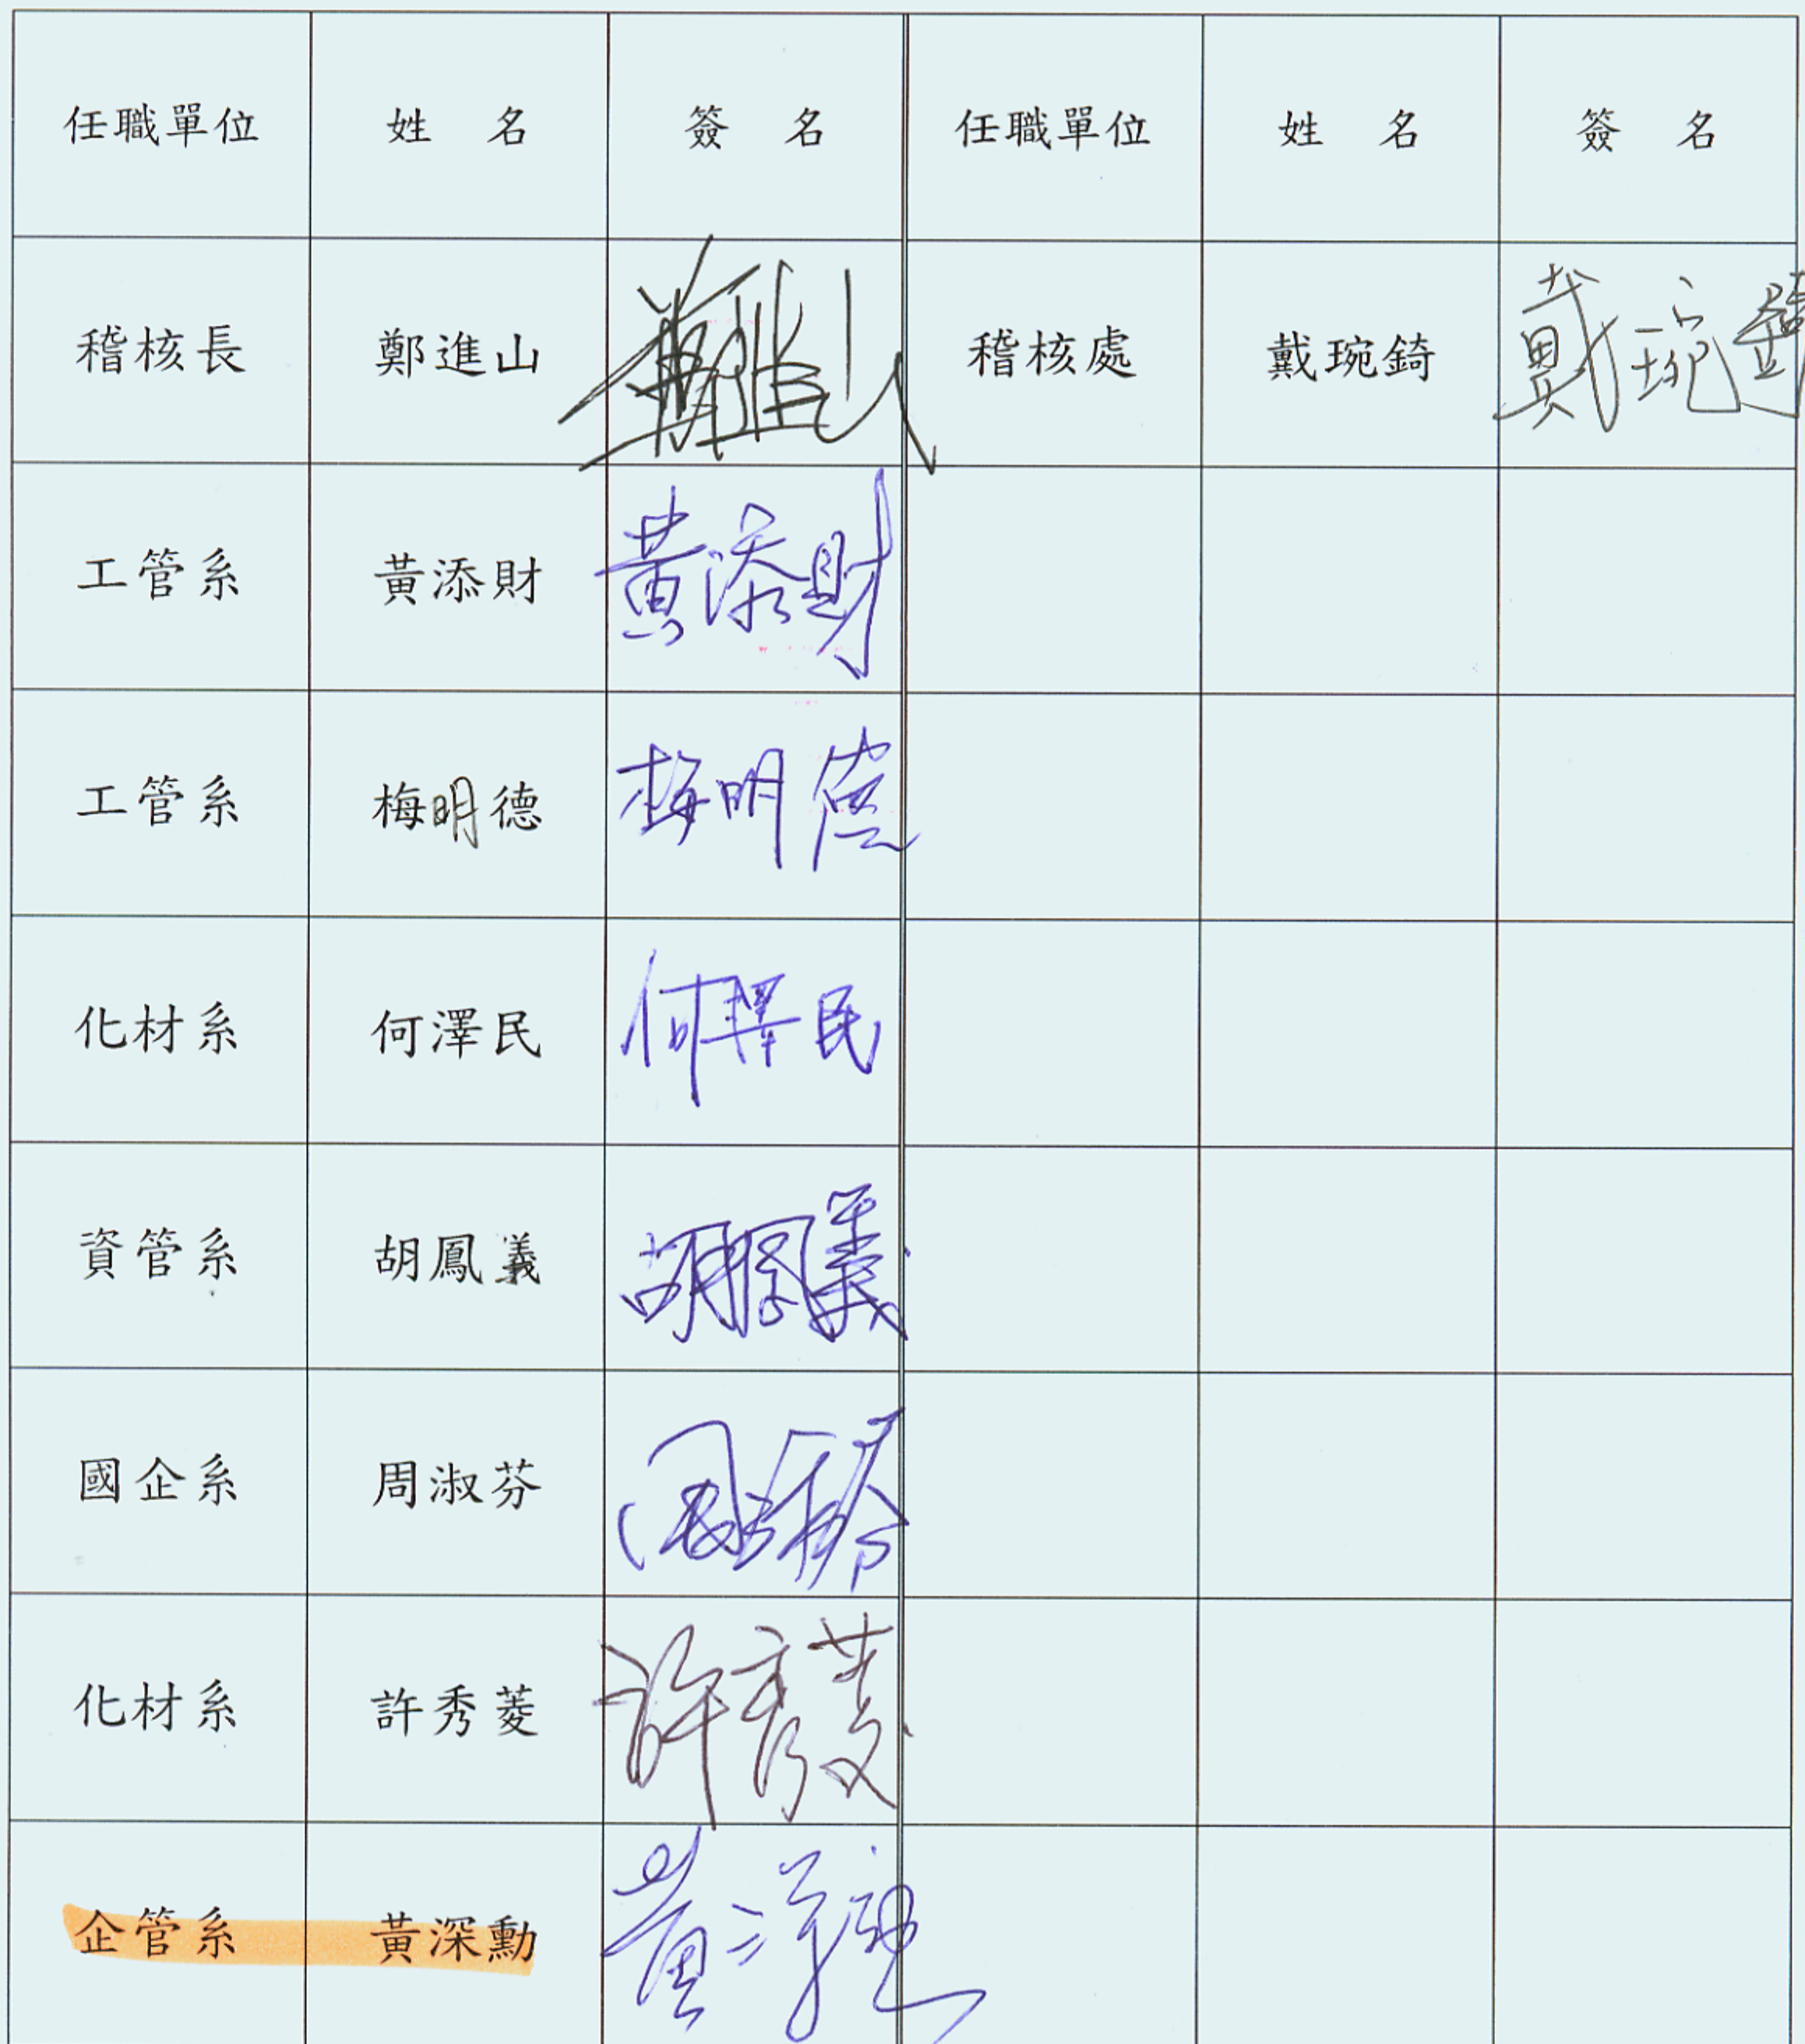 任職單位 姓 名 簽 名 任職單位 姓 名 簽 名
稽核長 鄭進山 鄭進山 稽核處 戴琬錡 戴琬錡
工管系 黃添財 黃添財
工管系 梅明德 梅明德
化材系 何澤民 何澤民
資管系 胡鳳義 胡鳳義
國企系 周淑芬 周淑芬
化材系 許秀菱 許秀菱
企管系 黃深勳 黃深勳